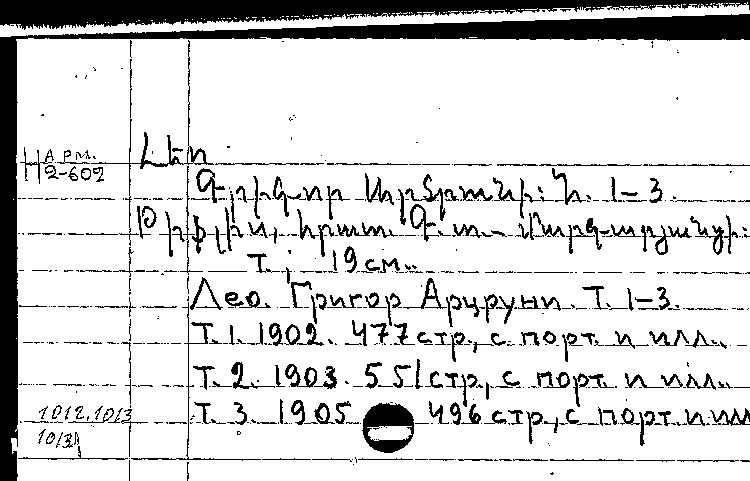 Арм.
2-602
Լեո
Գրիգոր Արծրունի: Հ. 1-3.
Թիֆլիս, հրատ. Գ. տ. Մարգարյանցի:
т.; 19 см..
Лео. Григор Арцруни. Т. 1-3.
Т. 1. 1902. 477 стр., с порт. и илл..
Т. 2. 1903. 551 стр., с порт. и илл..
Т. 3. 1905 496 стр., с порт. и илл
1012, 1013